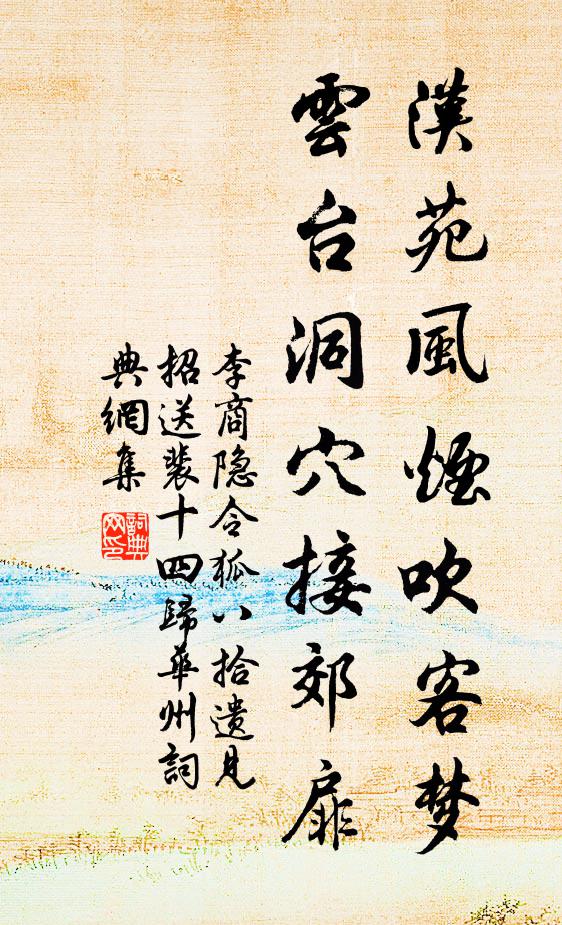 漢苑風煙吹客梦
雲台洞穴接郊扉
李商隐令狐八拾遗見
招送裴十四歸華州詞
典網集
詞典
网印